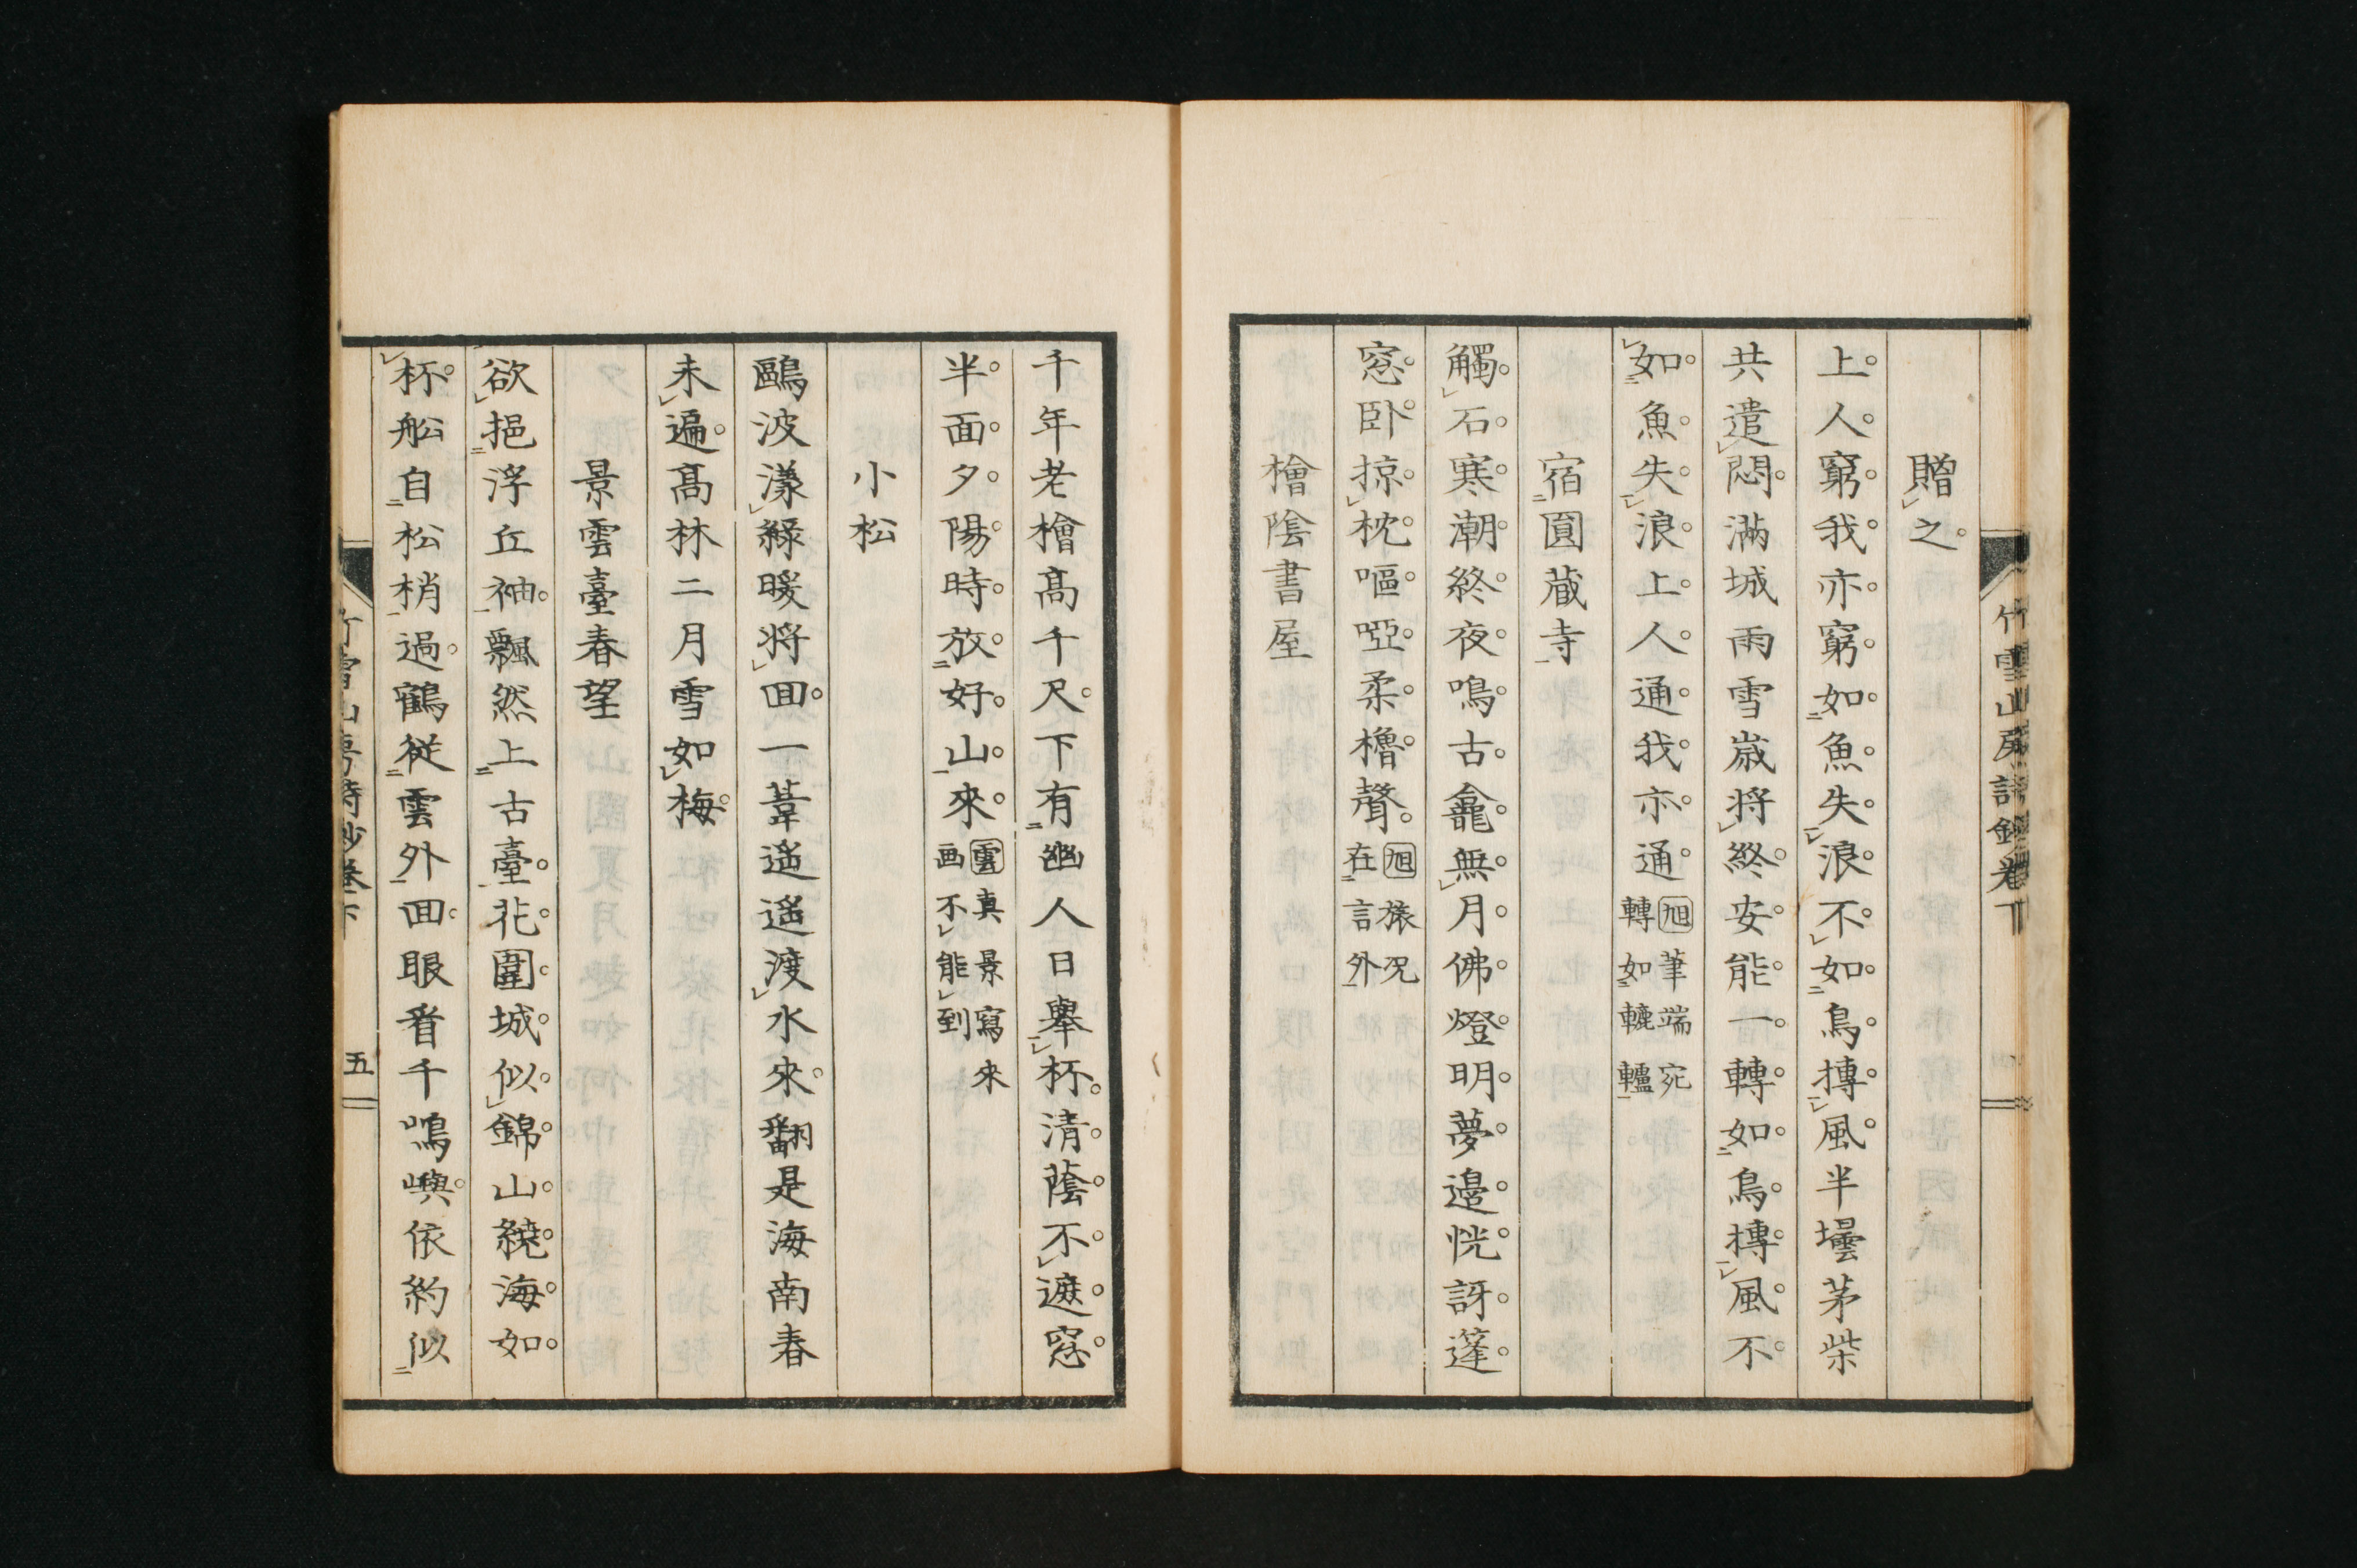 竹雪山房詩鈔卷下
贈之
上人窮我亦窮如魚失浪不如鳥摶風半壜茅柴
共遣悶滿城雨雪歳将終安能一轉如鳥摶風不
如魚失浪上人通我亦通旭筆端宛
轉如轆轤
宿圓蔵寺
觸石寒潮終夜鳴古龕無月佛燈明夢邉恍訝篷
窓卧掠枕嘔啞柔櫓聲旭旅况
在言外
檜陰書屋
千年老檜髙千尺下有幽人日舉杯清蔭不遮窓
半面夕陽時放好山來雲真景寫來
画不能到
小松
鷗波漾緑暖将囬一葦遥遥渡水來翻是海南春
未遍髙林二月雪如梅
景雲臺春望
欲挹浮丘袖飄然上古臺花圍城似錦山繞海如
杯舩自松梢過鶴従雲外囬眼看千嶋嶼依約似
竹雪山房詩鈔卷下
五